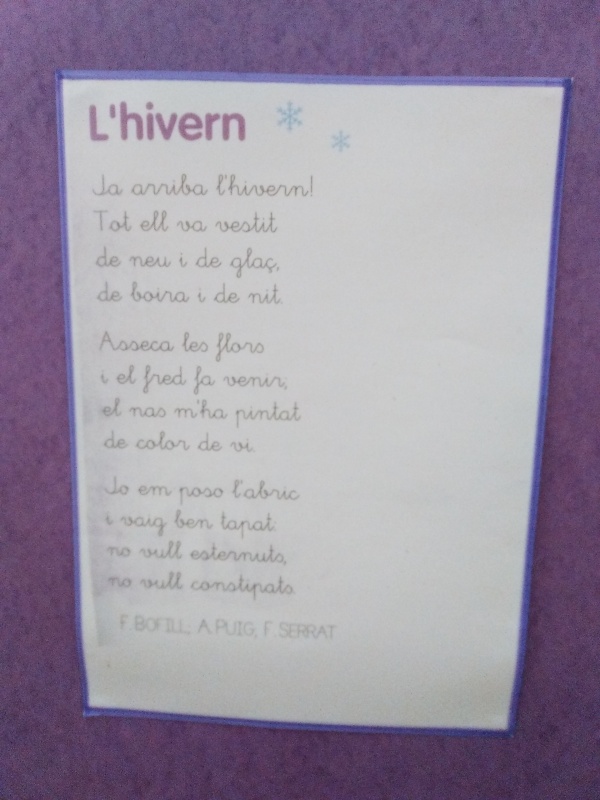 L'hivern
Ja arriba l'hivern!
Tot ell va vestit
de neu i de glaç,
de boira i de nit.
Asseca les flors
i el fred fa venir,
el nas m'ha pintat
de color de vi.
Jo em poso l'abric
i vaig ben tapat:
no vull esternuts,
no vull constipats.
F. BOFILL; A. PUIG; F. SERRAT